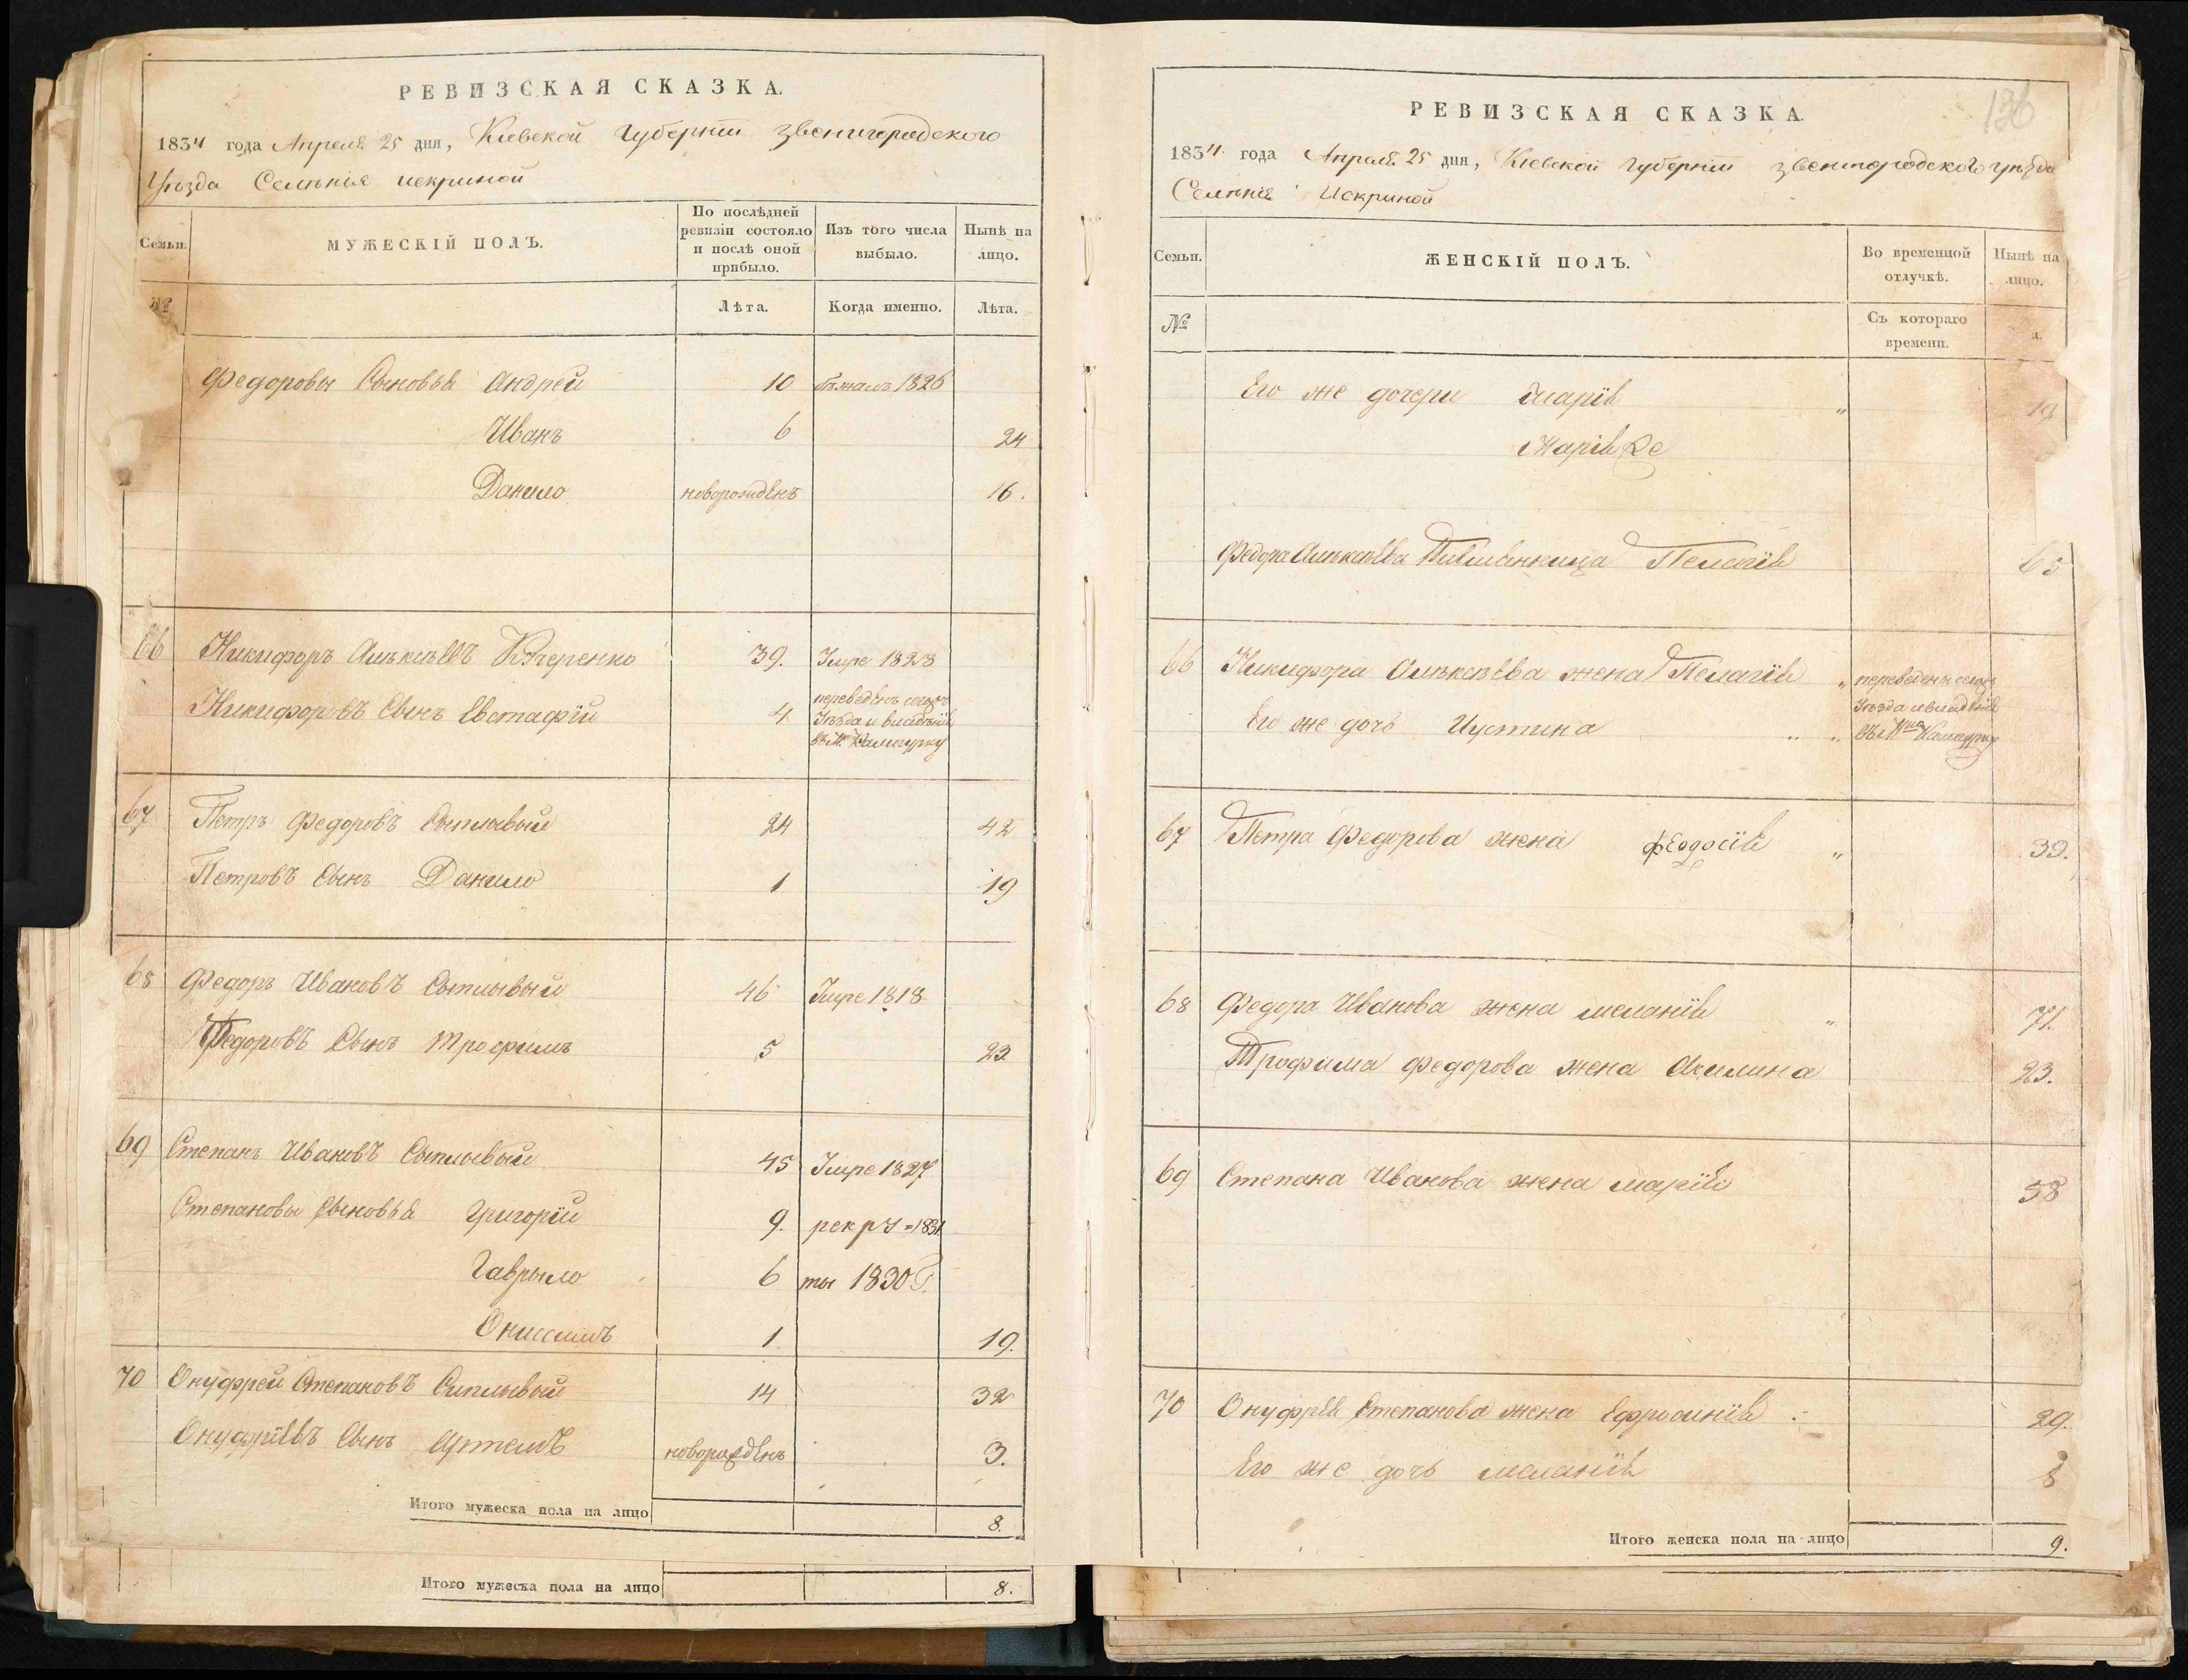 РЕВИЗСКАЯ СКАЗКА.
1834 года Апреля 25 дня, Кіевской Губерніи звенигородского
Уѣзда Селѣнія искриной
Семьи. МУЖЕСКІЙ ПОЛЪ. По послѣдней ревизіи состояло и послѣ оной прибыло. Изъ того числа выбыло. Нынѣ на лицо.
№ Лѣта. Когда именно. Лѣта.
Федоровы Сыновья Андрей 10 бѣжалъ 1826
Иванъ 6 24
Данило новорожденъ 16.
66 Никифоръ Алѣксѣевъ 39. Умре 1828
Никифоровъ Сынъ Евстафій 4 переведенъ сегожъ
Уѣзда и владѣнія
въ М. Калигурку
67 Петръ Федоровъ 24 42
Петровъ Сынъ Данило 1 19
68 Федоръ Ивановъ 46 Умре 1818
Федоровъ Сынъ Трофимъ 5 23
69 Степанъ Ивановъ 45 Умре 1827
Степановы Сыновья Григорій 9. рекру = 1831
Гаврыло 6 ты 1830 Г.
Ониссимъ 1 19.
70 Онуфрей Степановъ 14 32
Онуфріевъ Сынъ Артемъ новорожденъ 3.
Итого мужеска пола на лицо 8.
Итого мужеска пола на лицо 8.
136
РЕВИЗСКАЯ СКАЗКА.
1834 года Апреля 25 дня, Кіевской Губерніи звенигородского уѣзда
Селѣнія Искриной
Семьи. ЖЕНСКІЙ ПОЛЪ. Во временной отлучкѣ. Нынѣ на лицо.
№ Съ котораго времени.
Его же дочери Марія " 19
Марія 2е
Федора Алѣксѣева Пелагія 65
66 Никифора Алѣксѣева жена Пелагія " переведены сегожъ
Уѣзда и владѣнія
Его же дочь Иустина " " въ М. Калигурку
67 Петра Федорова жена Феодосія " 39.
68 Федора Иванова жена меланія " 71.
Трофима федорова жена Акилина 23.
69 Степана Иванова жена марія 58
70 Онуфрія Степанова жена Ефросинія 29.
Его же дочь меланія 8
Итого женска пола на лицо 9.